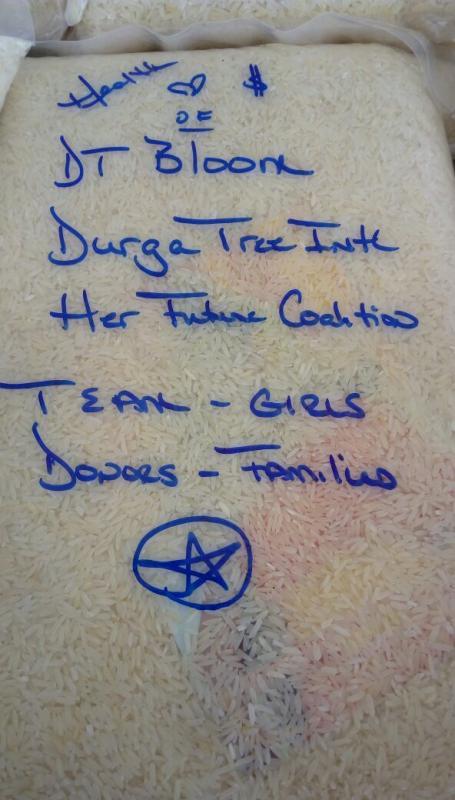 Health ♡ $
OF
DT Bloom
Durga Tree Intl
Her Future Coalition
TEAM - GIRLS
DONORS - FAMILIES